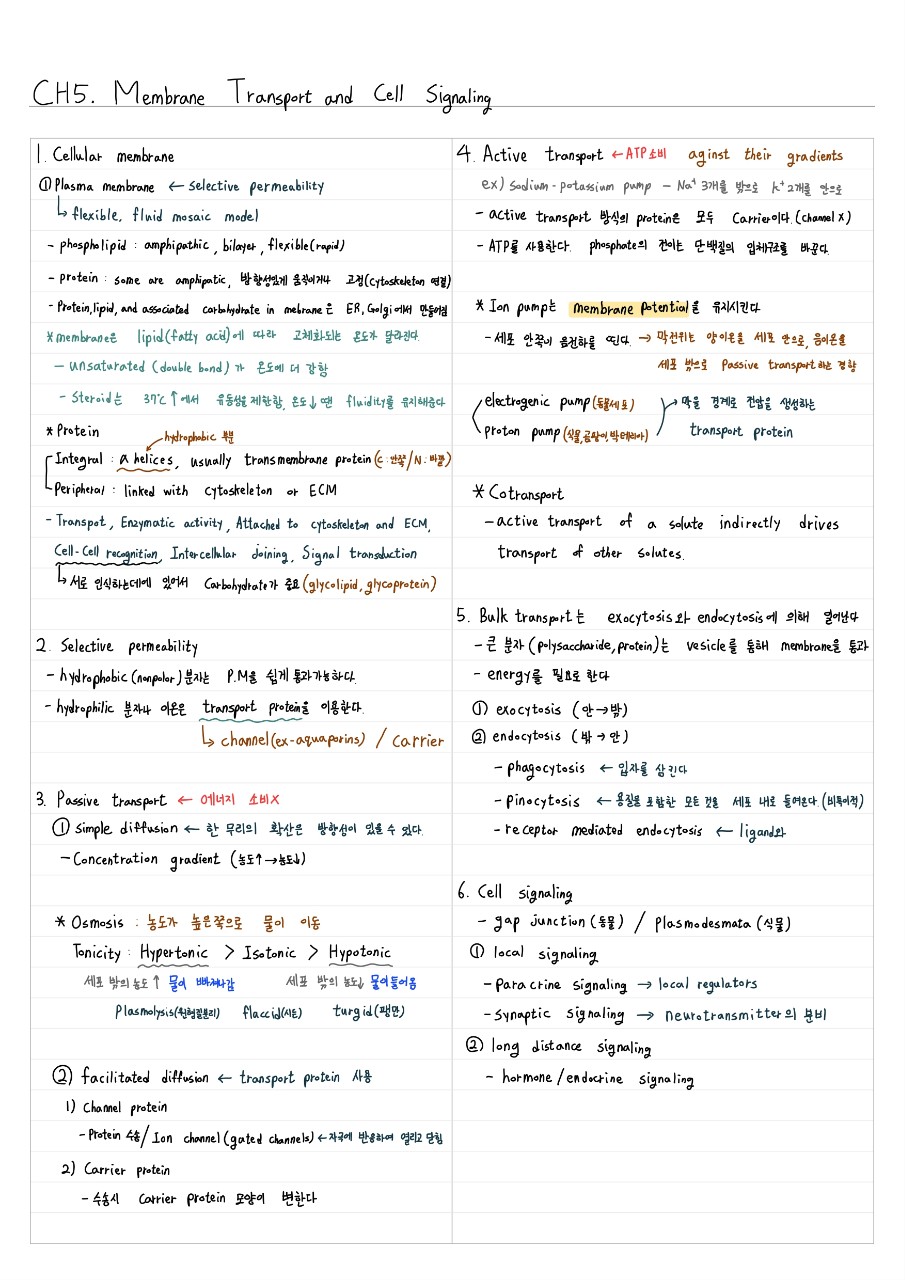 CH5. Membrane Transport and Cell Signaling
1. Cellular membrane
① Plasma membrane ← selective permeability
↳ flexible, fluid mosaic model
- phospholipid : amphipathic, bilayer, flexible(rapid)
- protein : some are amphipatic, 방향성있게 움직이거나 고정(cytoskeleton 연결)
- Protein, lipid, and associated carbohydrate in mebrane은 ER, Golgi에서 만들어짐
* membrane은 lipid(fatty acid)에 따라 고체화되는 온도가 달라진다.
- unsaturated (double bond)가 온도에 더 강함
- Steroid는 37℃↑에서 유동성을 제한함, 온도↓ 땐 fluidity를 유지해준다
* Protein
hydrophobic 부분
Integral : α helices, usually transmembrane protein (C:안쪽/N:바깥)
Peripheral : linked with cytoskeleton or ECM
- Transpot, Enzymatic activity, Attached to cytoskeleton and ECM,
Cell-Cell recognition, Intercellular joining, Signal transduction
↳ 서로 인식하는데에 있어서 Carbohydrate가 중요 (glycolipid, glycoprotein)
2. Selective permeability
- hydrophobic(nonpolar)분자는 P.M을 쉽게 통과가능하다.
- hydrophilic 분자나 이온은 transport protein을 이용한다.
↳ channel(ex-aquaporins) / carrier
3. Passive transport ← 에너지 소비X
① simple diffusion ← 한 무리의 확산은 방향성이 있을 수 있다.
- Concentration gradient (농도↑→농도↓)
* Osmosis : 농도가 높은쪽으로 물이 이동
Tonicity : Hypertonic > Isotonic > Hypotonic
세포 밖의 농도↑ 물이 빠져나감 세포 밖의 농도↓ 물이 들어옴
Plasmolysis(원형질분리) flaccid(시든) turgid(팽만)
② facilitated diffusion ← transport protein 사용
1) Channel protein
- Protein 수송/ Ion channel (gated channels) ← 자극에 반응하여 열리고 닫힘
2) Carrier protein
- 수송시 Carrier protein 모양이 변한다
4. Active transport ← ATP소비 aginst their gradients
ex) Sodium-potassium pump - Na⁺ 3개를 밖으로 K⁺ 2개를 안으로
- active transport 방식의 protein은 모두 Carrier이다. (channel X)
- ATP를 사용한다. phosphate의 전이는 단백질의 입체구조를 바꾼다.
* Ion pump는 membrane potential을 유지시킨다
- 세포 안쪽이 음전하를 띤다. → 막전위는 양이온을 세포 안으로, 음이온을
세포 밖으로 Passive transport하는 경향
electrogenic pump (동물세포) → 막을 경계로 전압을 생성하는
proton pump (식물, 곰팡이, 박테리아) transport protein
* Cotransport
- active transport of a solute indirectly drives
transport of other solutes.
5. Bulk transport는 exocytosis와 endocytosis에 의해 일어난다
- 큰 분자 (polysaccharide, protein)는 vesicle을 통해 membrane을 통과
- energy를 필요로 한다
① exocytosis (안→밖)
② endocytosis (밖→안)
- phagocytosis ← 입자를 삼킨다
- pinocytosis ← 용질을 포함한 모든 것을 세포 내로 들여온다 (비특이적)
- receptor mediated endocytosis ← ligand와
6. Cell signaling
- gap junction (동물) / Plasmodesmata (식물)
① local signaling
- paracrine signaling → local regulators
- synaptic signaling → neurotransmitter의 분비
② long distance signaling
- hormone/endocrine signaling